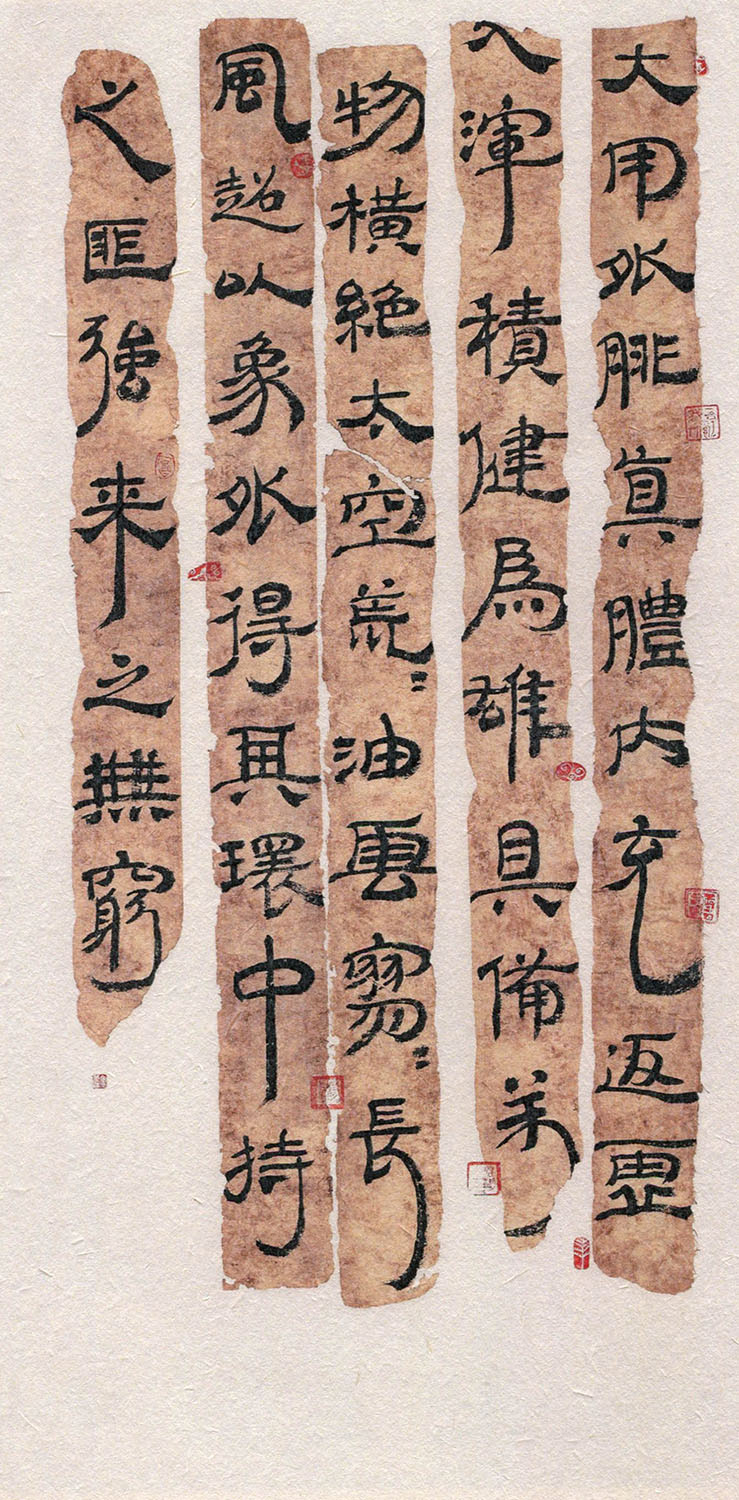 大用外腓眞體内充返虛
入渾積健爲雄具備萬
物橫絕太空荒〻油雲寥〻長
風超以象外得其環中持
之匪強来之無窮